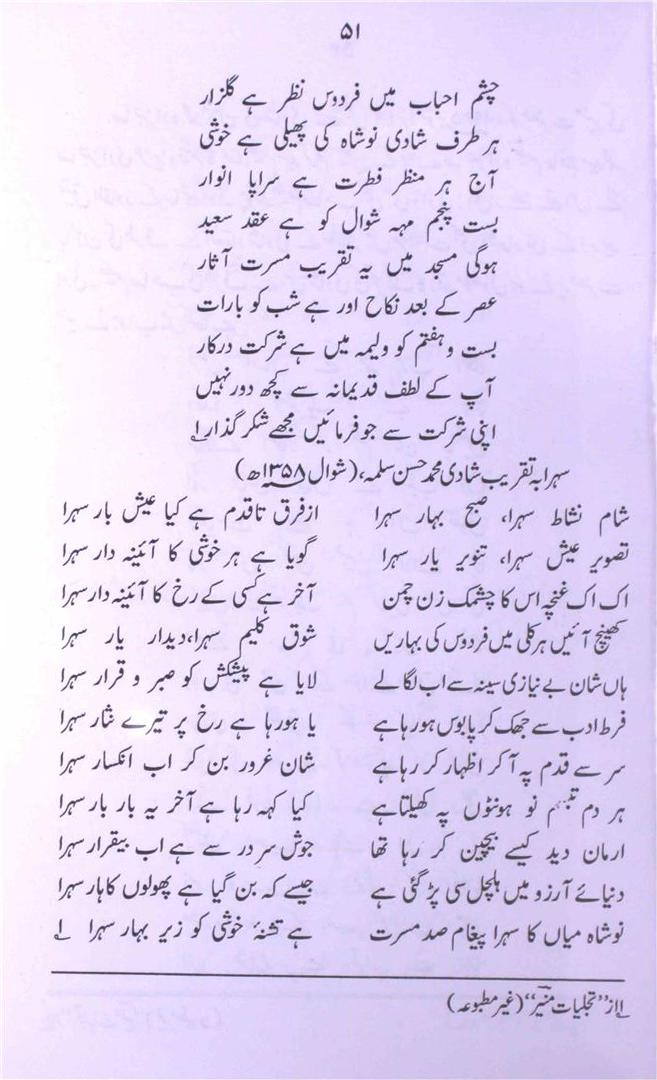 ۵۱
چشم احباب میں فردوس نظر ہے گلزار
ہر طرف شادی نوشاہ کی پھیلی ہے خوشی
آج ہر منظر فطرت ہے سراپا انوار
بست پنجم مہہ شوال کو ہے عقد سعید
ہوگی مسجد میں یہ تقریب مسرت آثار
عصر کے بعد نکاح اور ہے شب کو بارات
بست و ہفتم کو ولیمہ میں ہے شرکت درکار
آپ کے لطف قدیمانہ سے کچھ دور نہیں
اپنی شرکت سے جو فرمائیں مجھے شکر گذار ۱؎
سہرا بہ تقریب شادی محمد حسن سلمہ، (شوال ۱۳۵۸ھ)
شام نشاط سہرا، صبح بہار سہرا ازفرق تاقدم ہے کیا عیش بار سہرا
تصویر عیش سہرا، تنویر یار سہرا گویا ہے ہر خوشی کا آئینہ دار سہرا
اک اک غنچہ اس کا چشمک زن چمن آخر ہے کسی کے رخ کا آئینہ دار سہرا
کھینچ آئیں ہر کلی میں فردوس کی بہاریں شوق کلیم سہرا، دیدار یار سہرا
ہاں شان بے نیازی سینہ سے اب لگالے لایا ہے پیشکش کو صبر و قرار سہرا
فرط ادب سے جھک کر پابوس ہورہا ہے یا ہورہا ہے رخ پر تیرے نثار سہرا
سر سے قدم پہ آکر اظہار کر رہا ہے شان غرور بن کر اب انکسار سہرا
ہر دم تبسم نو ہونٹوں پہ کھیلتا ہے کیا کہہ رہا ہے آخر یہ بار بار سہرا
ارمان دید کیسے بیچین کر رہا تھا جوش سر در سے ہے اب بیقرار سہرا
دنیائے آرزو میں ہلچل سی پڑ گئی ہے جیسے کہ بن گیا ہے پھولوں کا ہار سہرا
نوشاہ میاں کا سہرا پیغام صد مسرت ہے تشنۂ خوشی کو زیر بہار سہرا ۱؎
۱؎ از ”تجلیات منیر“ (غیر مطبوعہ)